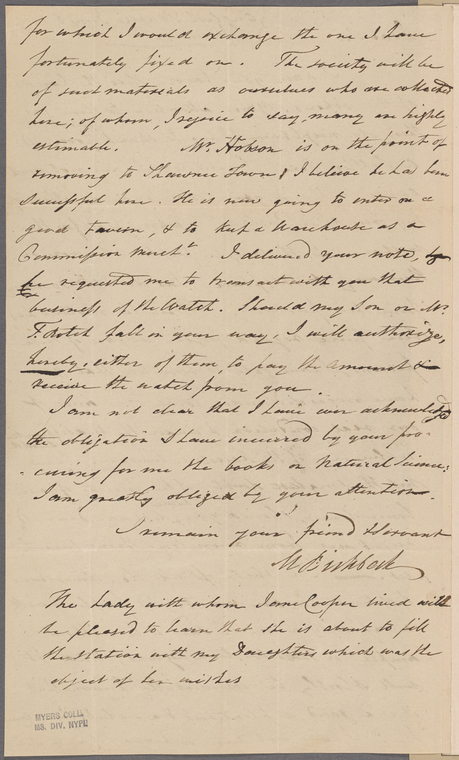 for which I would exchange the one I have
fortunately fixed on. The society will be
of such materials as ourselves who are collected
here; of whom, I rejoice to say, many are highly
estimable. Mr. Hobson is on the point of
removing to Shawnee Town & I believe he has been
successful here. He is now going to enter on a
good Tavern, & to keep a Warehouse as a
Commission Mercht. I delivered your note,
he requested me to transact with you that
business of the Watch. Should my Son or Mr.
T. Rotch fall in your way, I will authorize,
hereby, either of them, to pay the amount &
receive the watch from you.
I am not clear that I have ever acknowledged
the obligation I have incurred by your pro-
-curing for me the books on Natural Science:
I am greatly obliged by your attention.
I remain your friend & Servant
M Birkbeck
The Lady with whom Jane Cooper lived will
be pleased to learn that she is about to fill
the station with my Daughters which was the
object of her wishes
MYERS COLL.
MS. DIV. NYPL